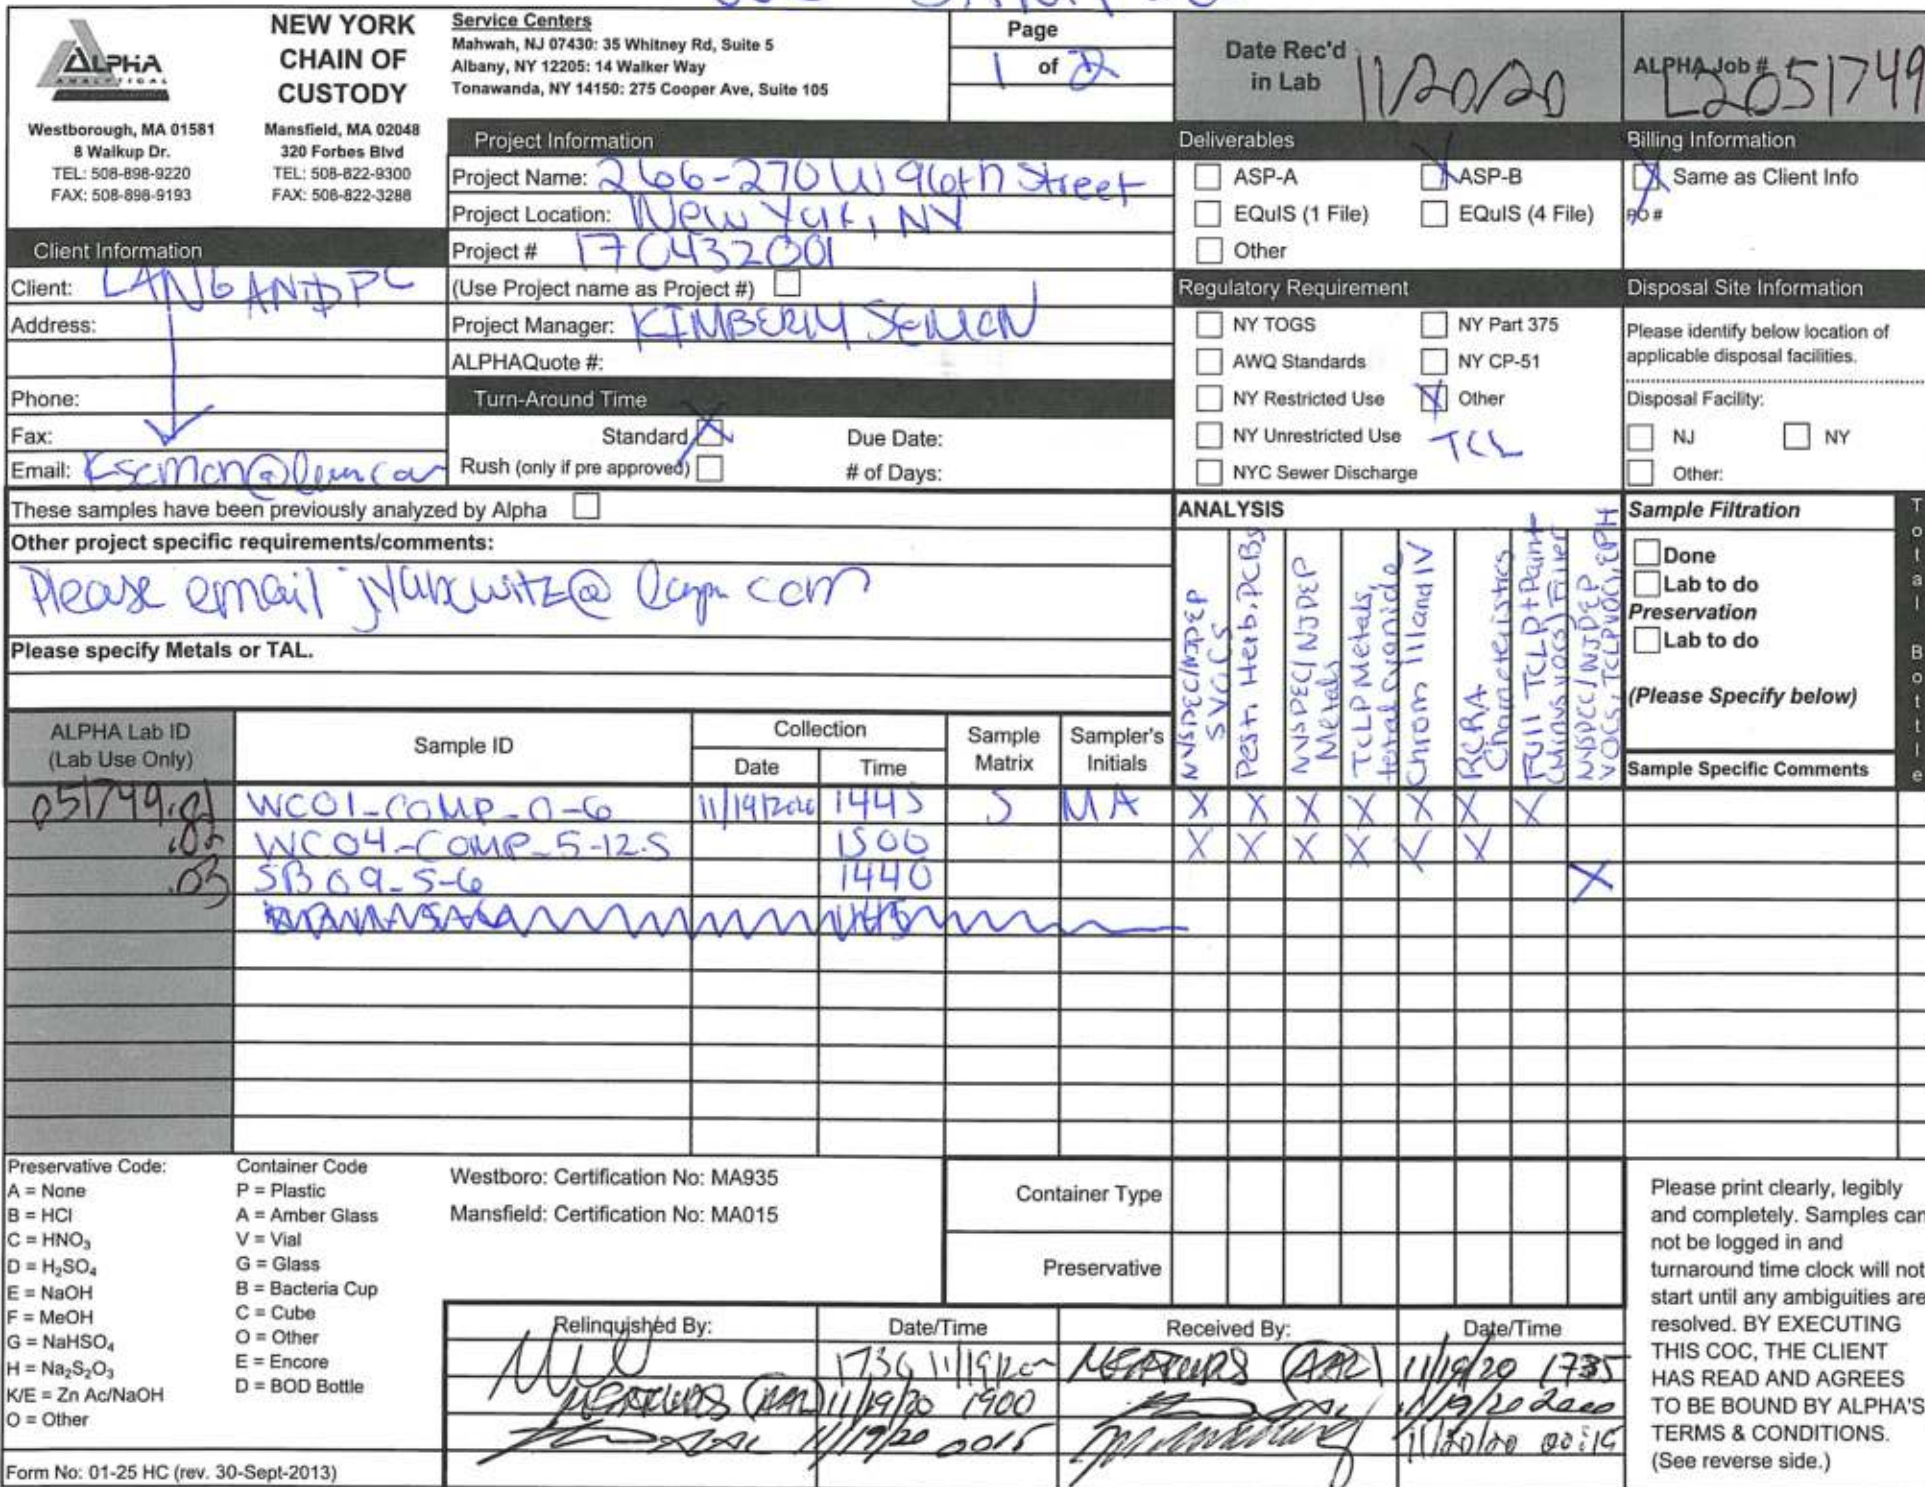 ALPHA
ANALYTICAL
NEW YORK
CHAIN OF
CUSTODY
Westborough, MA 01581
8 Walkup Dr.
TEL: 508-898-9220
FAX: 508-898-9193
Mansfield, MA 02048
320 Forbes Blvd
TEL: 508-822-9300
FAX: 508-822-3288
Service Centers
Mahwah, NJ 07430: 35 Whitney Rd, Suite 5
Albany, NY 12205: 14 Walker Way
Tonawanda, NY 14150: 275 Cooper Ave, Suite 105
Page
1 of 2
Date Rec'd
in Lab
11/20/20
ALPHA Job #
L2051749
Project Information
Project Name: 266-270 W 96th Street
Project Location: New York, NY
Project # 170432001
(Use Project name as Project #)
Project Manager: KIMBERLY SEMON
ALPHAQuote #:
Deliverables
ASP-A
ASP-B
EQuIS (1 File)
EQuIS (4 File)
Other
Billing Information
Same as Client Info
PO #
Client Information
Client: LANGAN DPC
Address:
Phone:
Fax:
Email:
Turn-Around Time
Standard
Due Date:
Rush (only if pre approved)
# of Days:
Regulatory Requirement
NY TOGS
NY Part 375
AWQ Standards
NY CP-51
NY Restricted Use
Other
NY Unrestricted Use
TCL
NYC Sewer Discharge
Disposal Site Information
Please identify below location of
applicable disposal facilities.
Disposal Facility:
NJ
NY
Other:
These samples have been previously analyzed by Alpha
Other project specific requirements/comments:
Please email
Please specify Metals or TAL.
ANALYSIS
NYSDEC/NJDEP
SVOCS
Pest. Herb. PCBs
NYSDEC/NJDEP
Metals
TCLP Metals,
total cyanide
Chrom III and IV
RCRA
Characteristics
Full TCLP + Paint
(Minus VOCs) Filter
NYSDEC/NJDEP
VOCS, TCLP VOC, EPH
Sample Filtration
Done
Lab to do
Preservation
Lab to do
(Please Specify below)
Total Bottle
Sample Specific Comments
ALPHA Lab ID
(Lab Use Only)
Sample ID
Collection
Date
Time
Sample
Matrix
Sampler's
Initials
051749.01 WC01-COMP_0-6 11/19/2020 1445 S MA X X X X X X X
.02 WC04-COMP_5-12.5 1500 X X X X X X
.03 SB09_5-6 1440 X
Preservative Code:
A = None
B = HCl
C = HNO₃
D = H₂SO₄
E = NaOH
F = MeOH
G = NaHSO₄
H = Na₂S₂O₃
K/E = Zn Ac/NaOH
O = Other
Container Code
P = Plastic
A = Amber Glass
V = Vial
G = Glass
B = Bacteria Cup
C = Cube
O = Other
E = Encore
D = BOD Bottle
Westboro: Certification No: MA935
Mansfield: Certification No: MA015
Container Type
Preservative
Relinquished By:
Date/Time
Received By:
Date/Time
(AAL) 11/19/20 1735
(AAL) 11/19/20 1900
AAL 11/19/20 2000
AAL 11/19/20 0015
11/20/20 00:15
Please print clearly, legibly
and completely. Samples can
not be logged in and
turnaround time clock will not
start until any ambiguities are
resolved. BY EXECUTING
THIS COC, THE CLIENT
HAS READ AND AGREES
TO BE BOUND BY ALPHA'S
TERMS & CONDITIONS.
(See reverse side.)
Form No: 01-25 HC (rev. 30-Sept-2013)